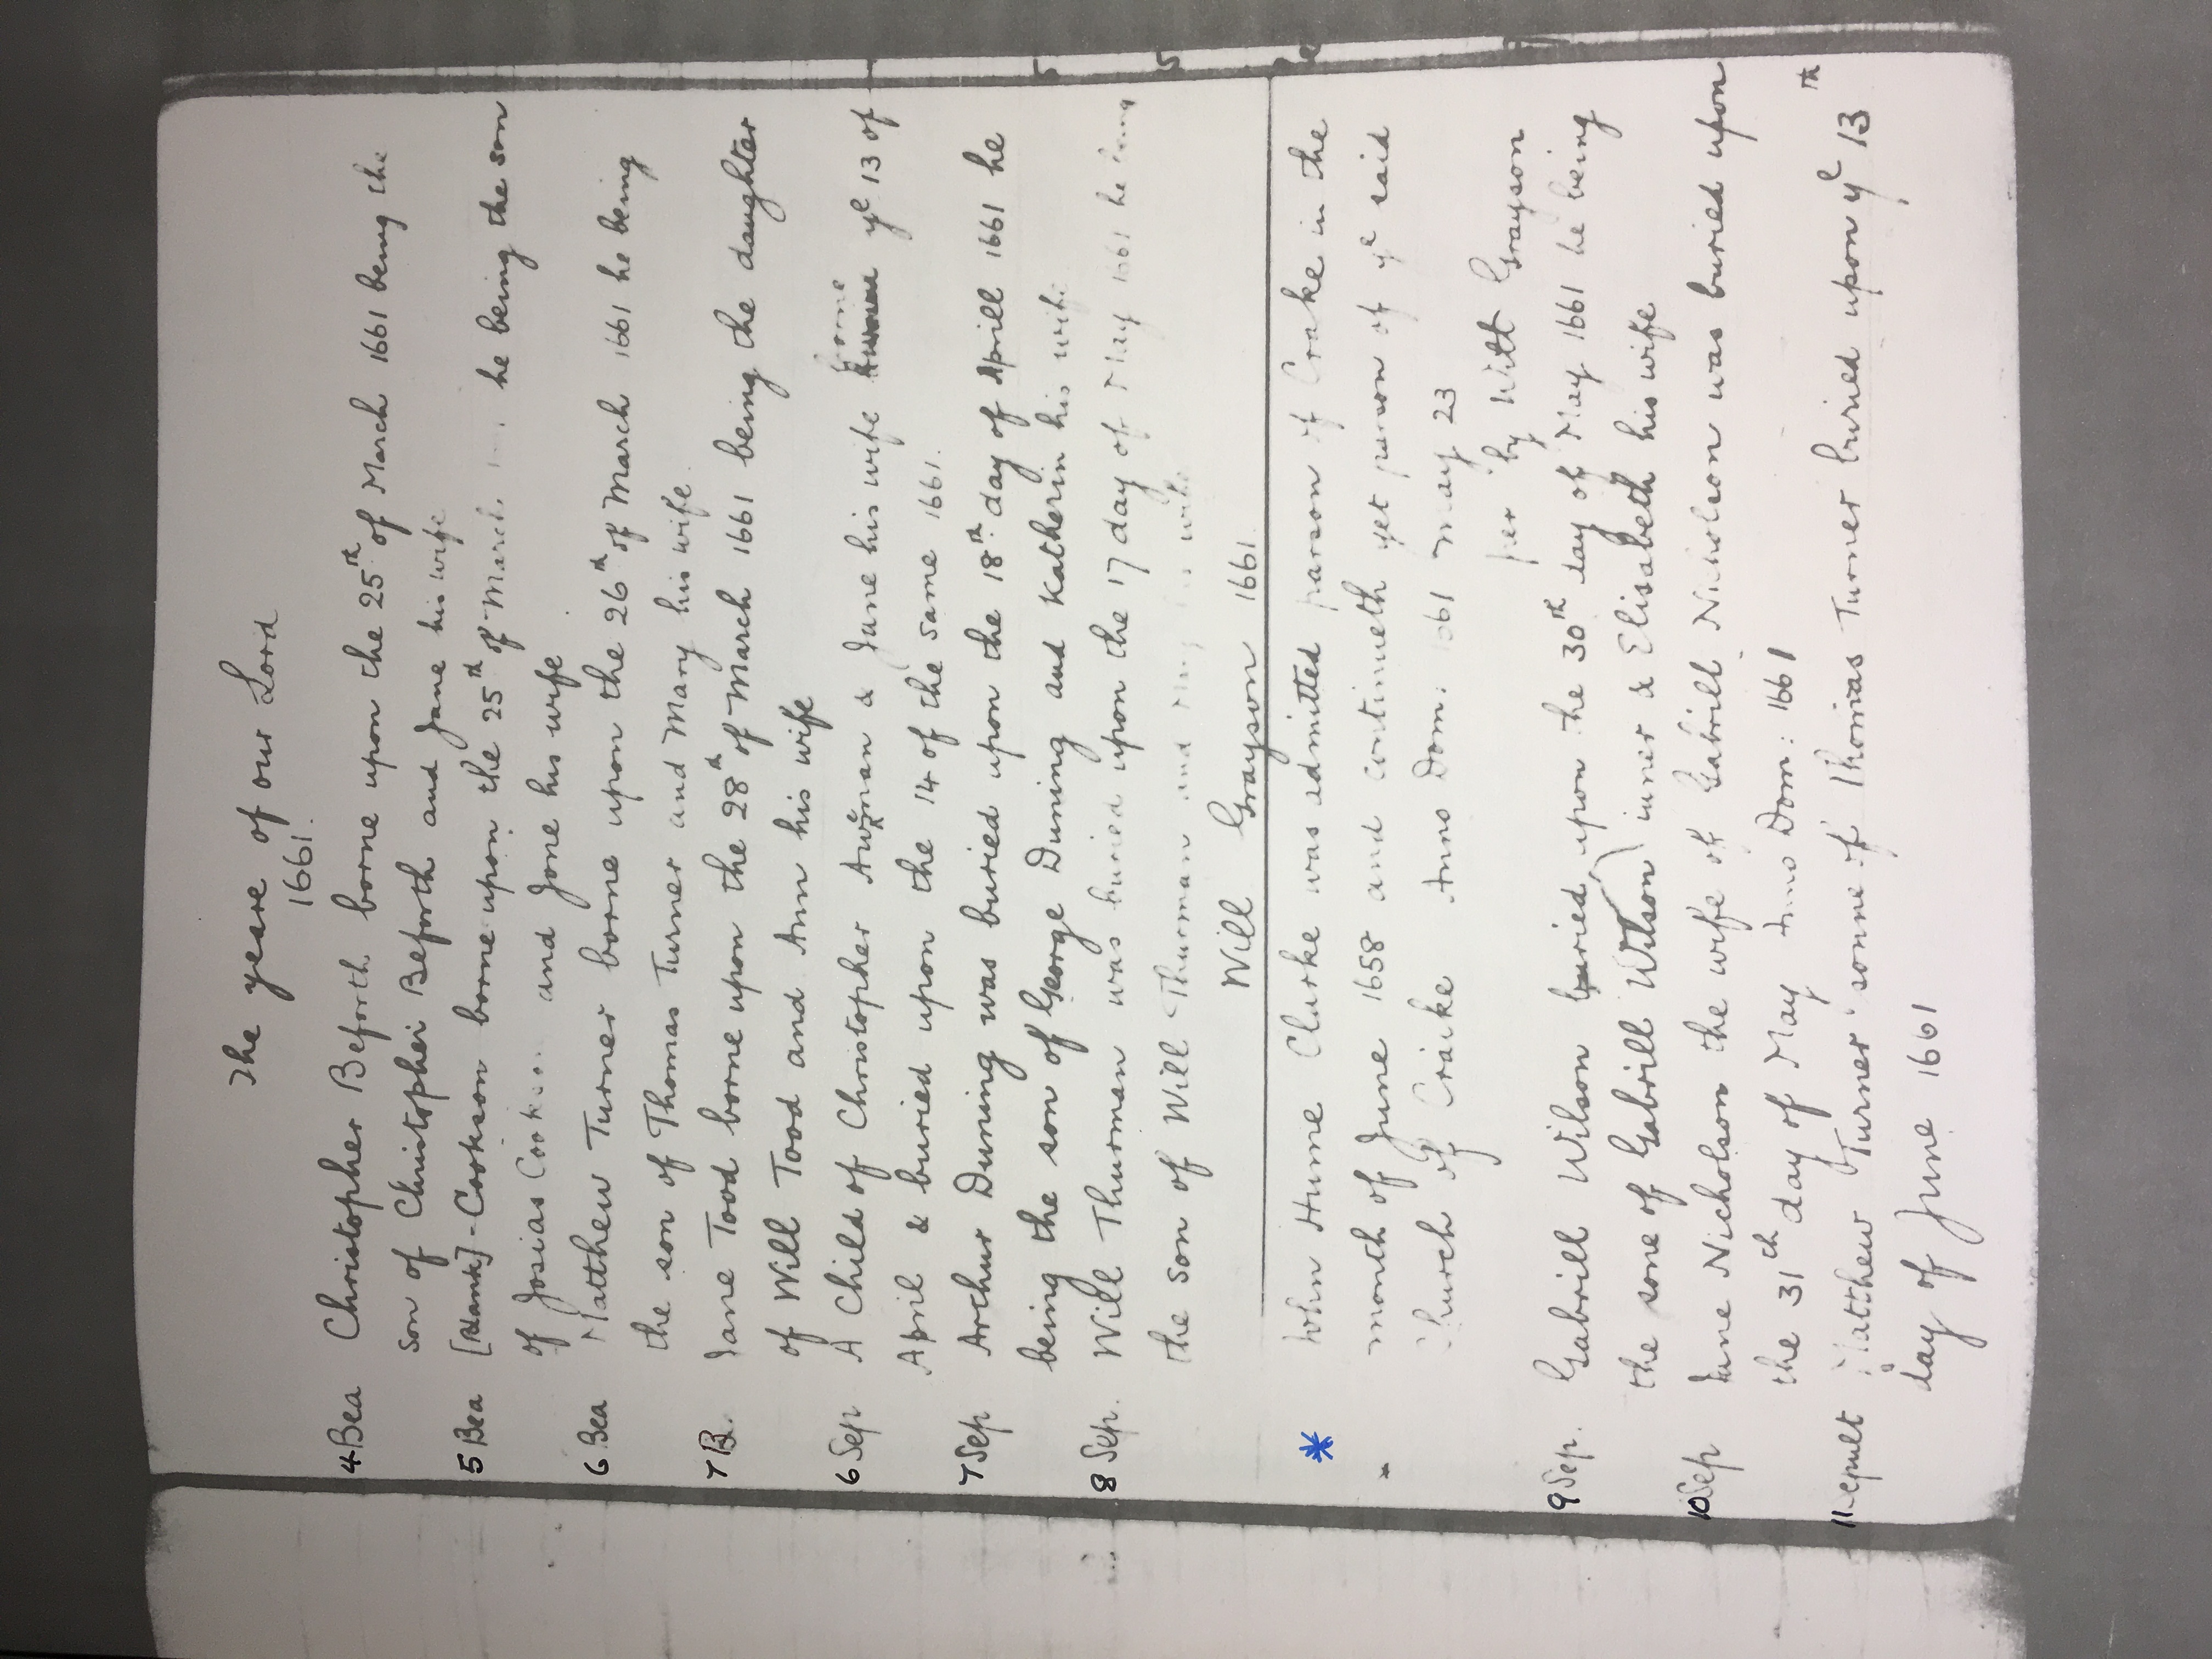 The yeare of our Lord
1661.
4 Bea Christopher Beforth borne upon the 25th of March 1661 being the
son of Christopher Beforth and Jane his wife
5 Bea [Blank] - Cookson borne upon the 25th of March he being the son
of Josias Cookson and Jone his wife
6 Bea Matthew Turner borne upon the 26th of March 1661 he being
the son of Thomas Turner and Mary his wife.
7 B. Jane Tood borne upon the 28th of March 1661 being the daughter
of Will Tood and Ann his wife
6 Sep A Child of Christopher & Jane his wife borne ye 13 of
April & buried upon the 14 of the same 1661.
7 Sep Archur Duning was buried upon the 18th day of Aprill 1661 he
being the son of George Duning and Katherin his wife
8 Sep. Will Thurman was buried upon the 17 day of May 1661 he being
the son of Will Thurman and his wife
Will Grayson 1661.
* John Hume Clarke was admitted parson of Crake in the
month of June 1658 and continueth yet parson of ye said
Church of Craike Anno Dom: 1661 May 23
per by Will Grayson
9 Sep. Gabrill Wilson buried upon the 30th day of May 1661 he being
the sone of Gabrill Wilson & Elisabeth his wife
10 Sep Jane Nicholson the wife of Gabrill Nicholson was buried upon
the 31th day of May Anno Dom: 1661
11 Sepult Matthew Turner sonne of Thomas Turner buried upon ye 13th
day of June 1661